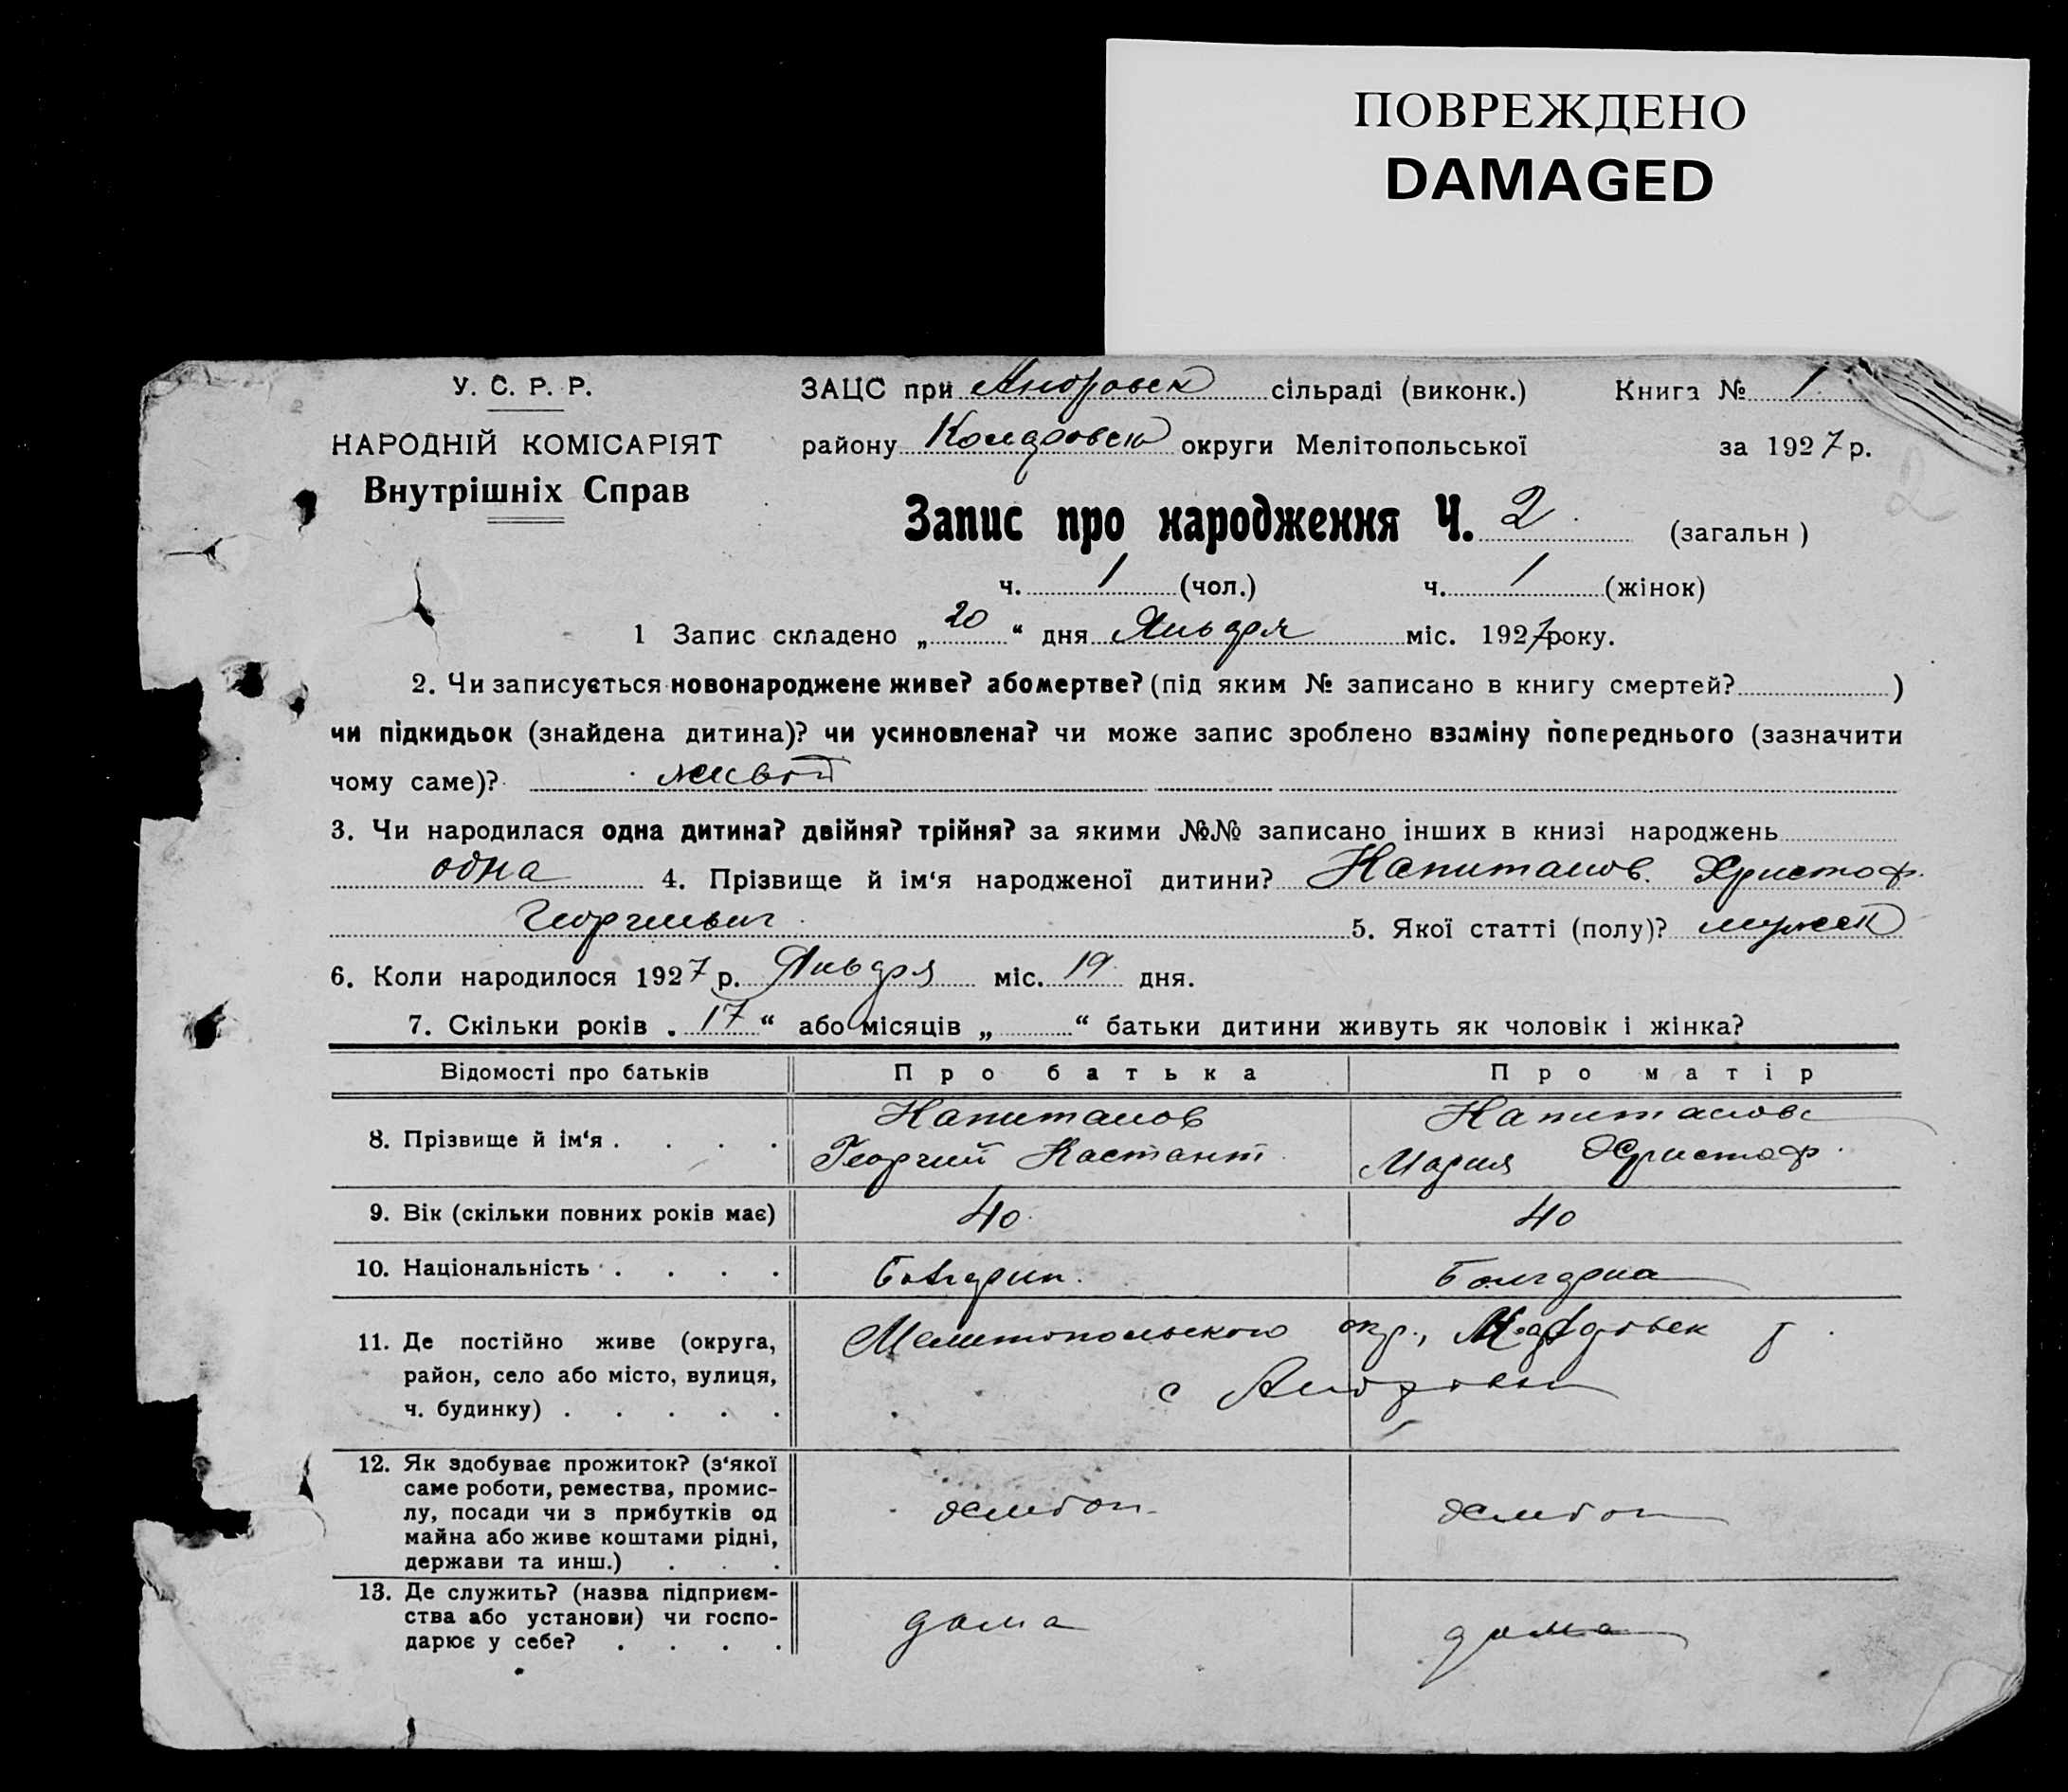 ПОВРЕЖДЕНО
DAMAGED
У. С. Р. Р.
НАРОДНІЙ КОМІСАРІЯТ
Внутрішніх Справ
ЗАЦС при сільраді (виконк.) Книга № 1
району округи Мелітопольської за 1927 р.
Запис про народження Ч. 2 (загальн)
ч. 1 (чол.) ч. 1 (жінок)
1 Запис складено „20“ дня Января міс. 1927 року.
2. Чи записується новонароджене живе? або мертве? (під яким № записано в книгу смертей? )
чи підкидьок (знайдена дитина)? чи усиновлена? чи може запис зроблено взаміну попереднього (зазначити
чому саме)? живой
3. Чи народилася одна дитина? двійня? трійня? за якими №№ записано інших в книзі народжень
одна 4. Прізвище й ім‘я народженої дитини? Капитанов Христоф.
Георгиевич 5. Якої статті (полу)? мужск
6. Коли народилося 1927 р. Января міс. 19 дня.
7. Скільки років „17“ або місяців „ “ батьки дитини живуть як чоловік і жінка?
Відомості про батьків Про батька Про матір
8. Прізвище й ім‘я . . . . Капитанов Георгий Кастант. Капитанова Мария Христоф.
9. Вік (скільки повних років має) 40 40
10. Національність . . . . Болгарин. Болгарка
11. Де постійно живе (округа, Мелитопольского окр.,
район, село або місто, вулиця, с
ч. будинку) . . . . .
12. Як здобуває прожиток? (з‘якої
саме роботи, ремества, промис-
лу, посади чи з прибутків од
майна або живе коштами рідні,
держави та инш.) . . .
13. Де служить? (назва підприєм-
ства або установи) чи госпо- дома дома
дарює у себе? . . . .